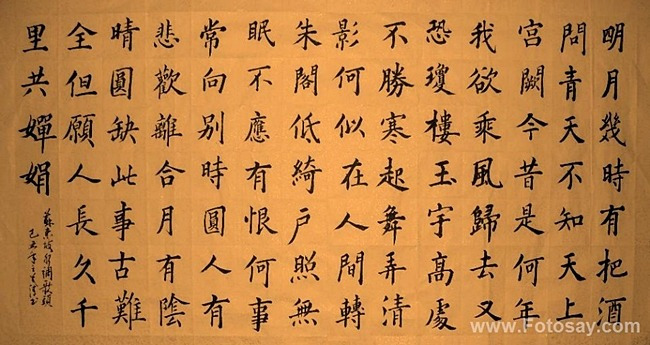 明月幾時有把酒
問青天不知天上
宮闕今昔是何年
我欲乘風歸去又
恐瓊樓玉宇高處
不勝寒起舞弄清
影何似在人間轉
朱閣低綺戶照無
眠不應有恨何事
常向別時圓人有
悲歡離合月有陰
晴圓缺此事古難
全但願人長久千
里共嬋娟
蘇東坡水調歌頭
己丑年
www.Fotosay.com